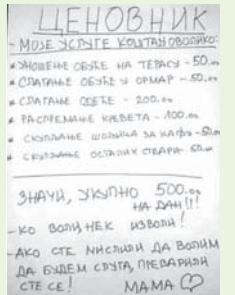 ЦЕНОВНИК
- МОЈЕ УСЛУГЕ КОШТАЈУ ОВОЛИКО:
* УНОШЕЊЕ ОБУЋЕ НА ТЕРАСУ - 50.00
* СЛАГАЊЕ ОБУЋЕ У ОРМАР - 50.00
* СЛАГАЊЕ ОДЕЋЕ - 200.00
* РАСПРЕМАЊЕ КРЕВЕТА - 100.00
* СКУПЉАЊЕ ШОЉИЦА ЗА КАФУ - 50.00
* СКУПЉАЊЕ ОСТАЛИХ СТВАРИ - 50.00
ЗНАЧИ, УКУПНО 500.00
НА ДАН!!!
- КО ВОЛИ, НЕК ИЗВОЛИ!
- АКО СТЕ МИСЛИЛИ ДА ВОЛИМ
ДА БУДЕМ СЛУГА, ПРЕВАРИЛИ
СТЕ СЕ! МАМА